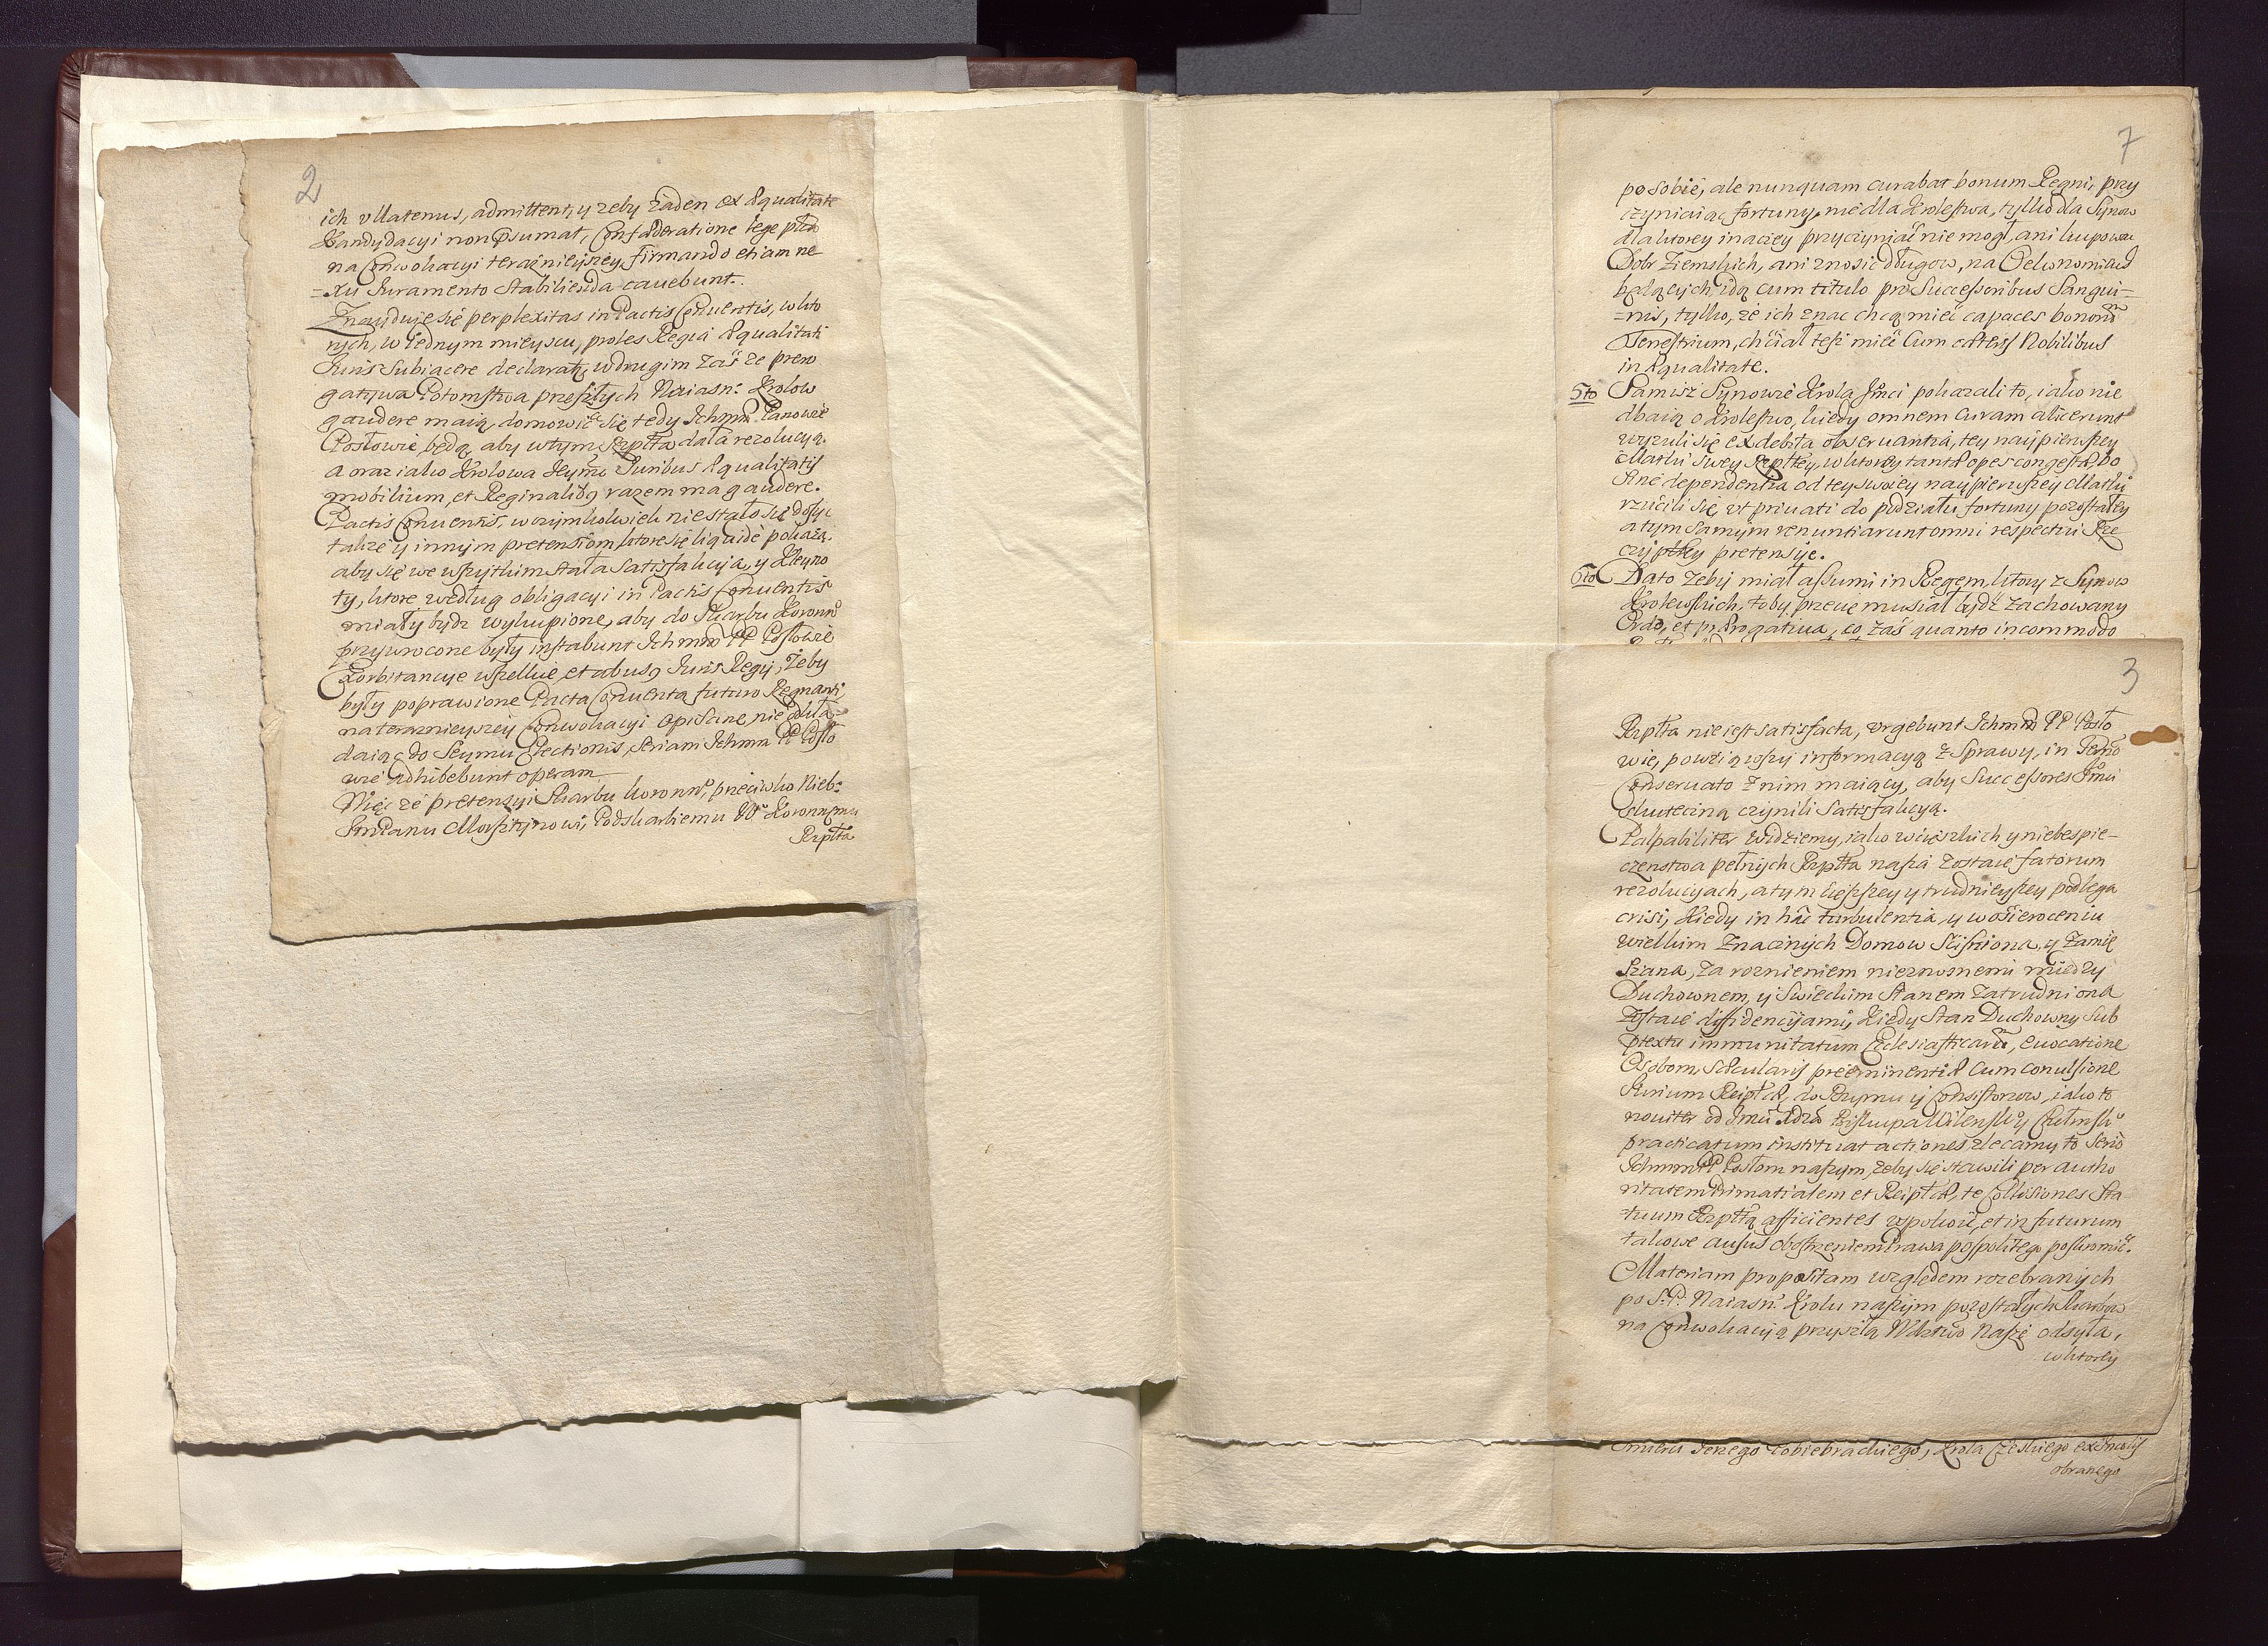 2
ich ullatenus, admittent, y zeby żaden ex Æqualitate
Kandydacyi non psumat, Confæderatione lege
na Conwokacyi teraznieyszey firmando etiam ne
=xu Juramento stabilienda cauebunt.
Znayduie się perplexitas in Pactis Conuentis, w kto
rych, w iednym mieyscu, proles Regia Æqualitati
Juris Subiacere declarat, w drugim Zaś ze prero
gatywa Potomstwa przeszłych Naiasn: Krolow
gaudere maią, domowić się tedy Ichmm Panowie
Posłowie będą, aby w tym Rzptta dała rezolucyą.
a oraz iako Krolowa Juribus Æqualitatis
mobilium, et Reginalibq razem ma gaudere.
Pactis Conuentis, w czymkolwiek nie stało się dosyc
takze y innym pretensiom ktore się liquide pokażą,
aby się we wszytkim stała Satisfakcyja, y Kleyno
ty, ktore według obligacyi in Pactis Conuentis
miały bydz wykupione, aby do Skarbu Koronn
przywrocone były instabunt Ichmm PP Posłowie
Exorbitancye wszelkie, et abusq Juris Regij, żeby
były poprawione Pacta Conuenta futuro Regnanti,
na teraznieyszey Conwokacyi opisane, nie odkła=
daiąc do Seymu Electionis, seriam Ichmm PP Posło
wie adhibebunt operam
Więc ze pretensyi Skarbu koronn, przeciwko Nieb:
Jm Panu Morsztynowi, Podskarbiemu W Koronnemu
Rzptta
7
po sobie, ale nunquam curabat bonum Regni, przy
czyniaiąc fortuny, nie dla Krolestwa, tylko dla Synow
dla ktorey inaczey przyczyniać nie mogł, ani kupować
Dobr Ziemskich, ani znosić długow, na Oekonomiach
będących, idą cum titulo pro Successoribus Sangui=
=nis, tylko, że ich znać chcą mieć capaces bonorũ
Terrestrium, chciał też mieć Cum cæteris Nobilibus
in Æqualitate.
5to Samisz Synowie Krola Jmci pokazali to, iako nie
dbaią o Krolestwo, kiedy omnem curam abiecerunt
wyzuli się ex debita obseruantia, tey naypierwszey
Matki swey Rzpltey, w ktorey tantæ opes congestæ, bo
sine dependentia od tey swoiey naypierwszey Matki
rzucili się ut priuati do podziału fortuny pozostałey
a tym samym renuntiarunt omni respectui Rze
czyptkey pretensije.
6to Dato żeby miał assumi in Regem, ktory z Synow
Krolewskich, toby przecie musiał bydz zachowany
Ordo, et prærogatiua, co zaś quanto incommodo
3
Rzptta nie iest satisfacta, urgebunt Ichmm PP Posło
wie, powziąwszy informacyą z Sprawy, in
Conseruato z nim maiący, aby Successores Jmci
skuteczną czynili Satisfakcyą.
Palpabiliter Widziemy, iako w cięszkich y niebespie-
czenstwa pełnych Rzptta nasza zostaie fatorum
rezolucyach, a tym cięższey y trudnieyszey podlega
crisi, Kiedy in hac turbulentia, y w osieroceniu
wielkim Znacznych Domow Scisniona, y zamie
szana, za roznieniem nieznosnemi między
Duchownem, y Swieckim Stanem zatrudniona
zostaie diffidencyjami, Kiedy Stan Duchowny Sub
ptextu immunitatum Ecclesiasticarũ, euocatione
Osobom, sæcularis præeminentiæ Cum conulsione
Jurium Reiptæ, do Rzymu y Consistorzow, iako to
nouiter od Jmci Xdza Biskupa Wilensk y Chełmsk
practicatum instituit actiones zlecamy to serio
Ichmm PP Posłom naszym, żeby się stawili per autho
ritatem Primatialem et Reiptæ, te Collisiones Sta
tuum Rzpttą afficientes uspokoić, et in futurum
takowe ausus obostrzeniem Prawa pospolitego poskromić.
Materiam propositam względem rozebranych
po S.P. Naiasn: Krolu naszym pozostałych Skarbow
na Conwokacyą przyszłą Wdztwo Nasze odsyła,
w ktorey
Jerzego Pobiebrackiego, Krola Czeskiego ex Incolis
obranego